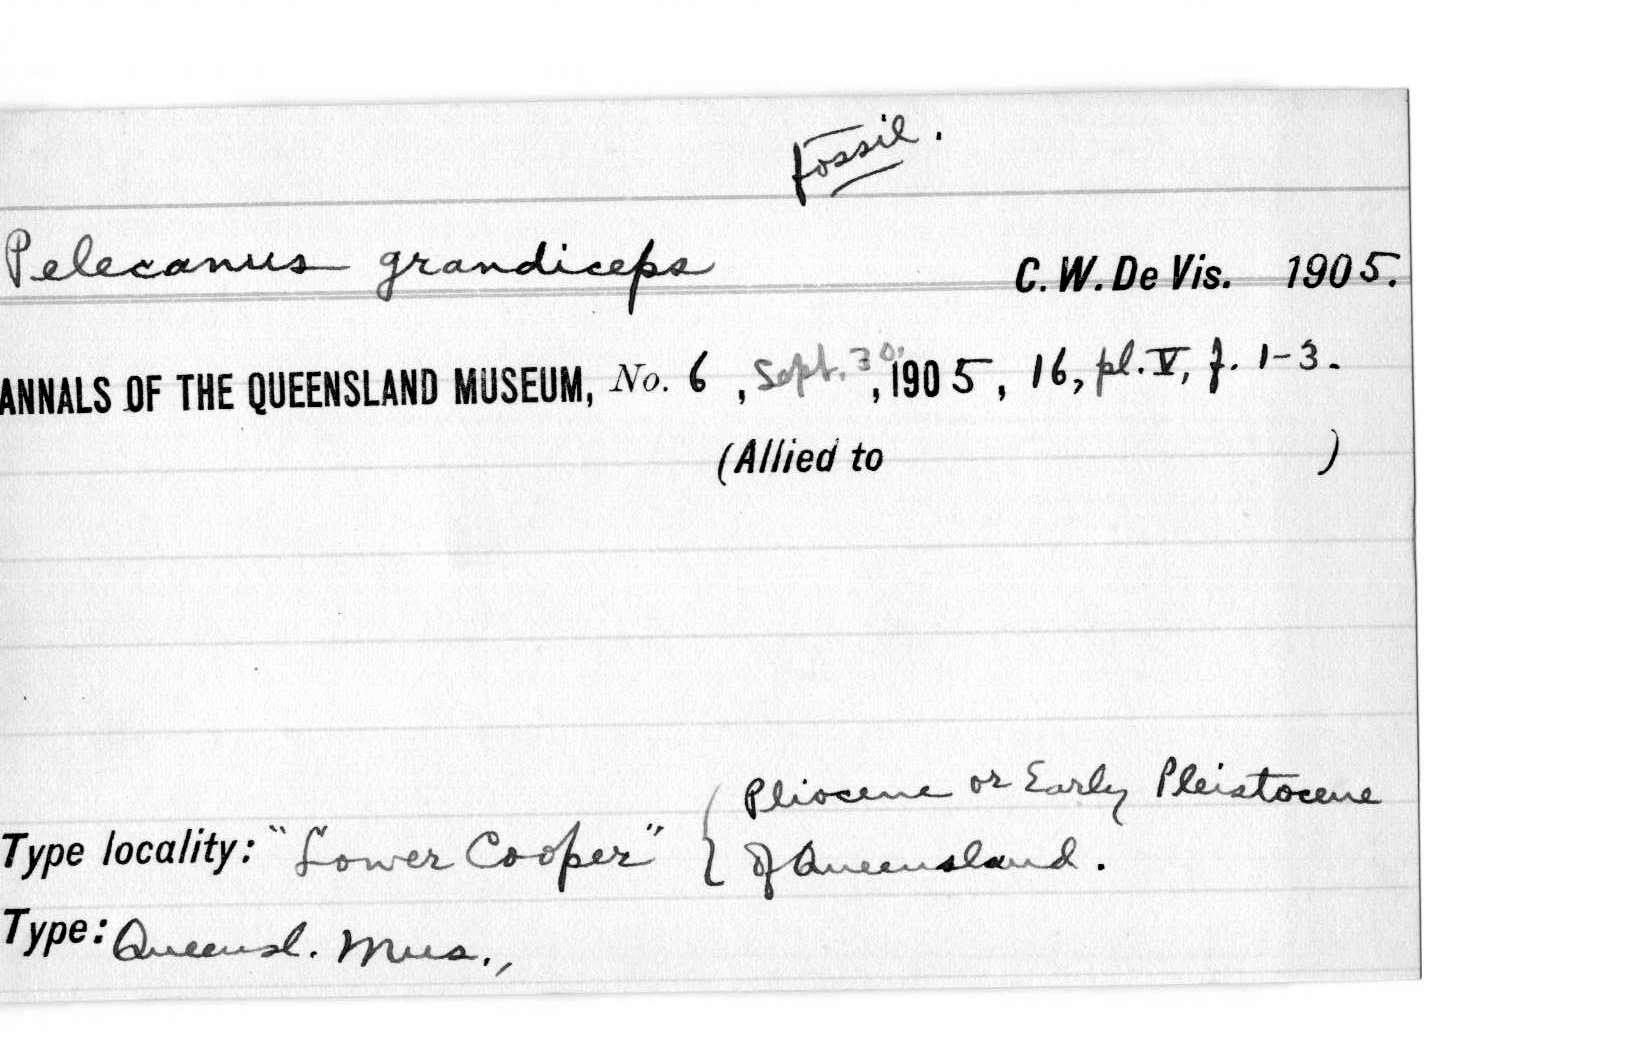 Fossil.
Pelecanus grandiceps C. W. De Vis. 1905.
ANNALS OF THE QUEENSLAND MUSEUM, No. 6, Sept. 30, 1905, 16, pl. V, f. 1-3.
(Allied to )
Pliocene or Early Pleistocene
Type locality: "Lower Cooper" { of Queensland.
Type: Queensl. Mus.,